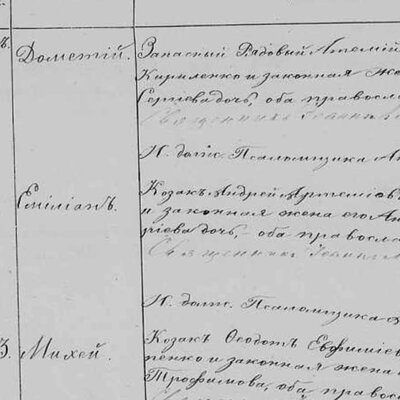 Дометій. Запасный Рядовый Артемій
Кириленко и законная же
Сергіева дочь, оба правосла
Священникъ
И. долж. Псаломщика
Емиліанъ. Козакъ Андрей Артеміов
и законная жена его Ан
ріева дочь, оба правосла
Священникъ
И. долж. Псаломщика
Михей. Козакъ Ѳеодотъ Евфиміев
ненко и законная жена
Трофимова, оба право